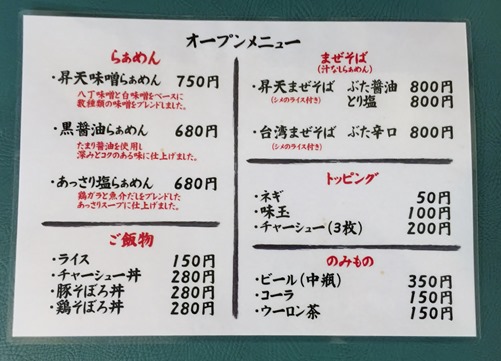 オープンメニュー
らぁめん
・昇天味噌らぁめん 750円
八丁味噌と白味噌をベースに
数種類の味噌をブレンドしました。
・黒醤油らぁめん 680円
たまり醤油を使用し
深みとコクのある味に仕上げました。
・あっさり塩らぁめん 680円
鶏ガラと魚介だしをブレンドした
あっさりスープに仕上げました。
ご飯物
・ライス 150円
・チャーシュー丼 280円
・豚そぼろ丼 280円
・鶏そぼろ丼 280円
まぜそば
(汁なしらぁめん)
・昇天まぜそば ぶた醤油 800円
(シメのライス付き) とり塩 800円
・台湾まぜそば ぶた辛口 800円
(シメのライス付き)
トッピング
・ネギ 50円
・味玉 100円
・チャーシュー(3枚) 200円
のみもの
・ビール(中瓶) 350円
・コーラ 150円
・ウーロン茶 150円